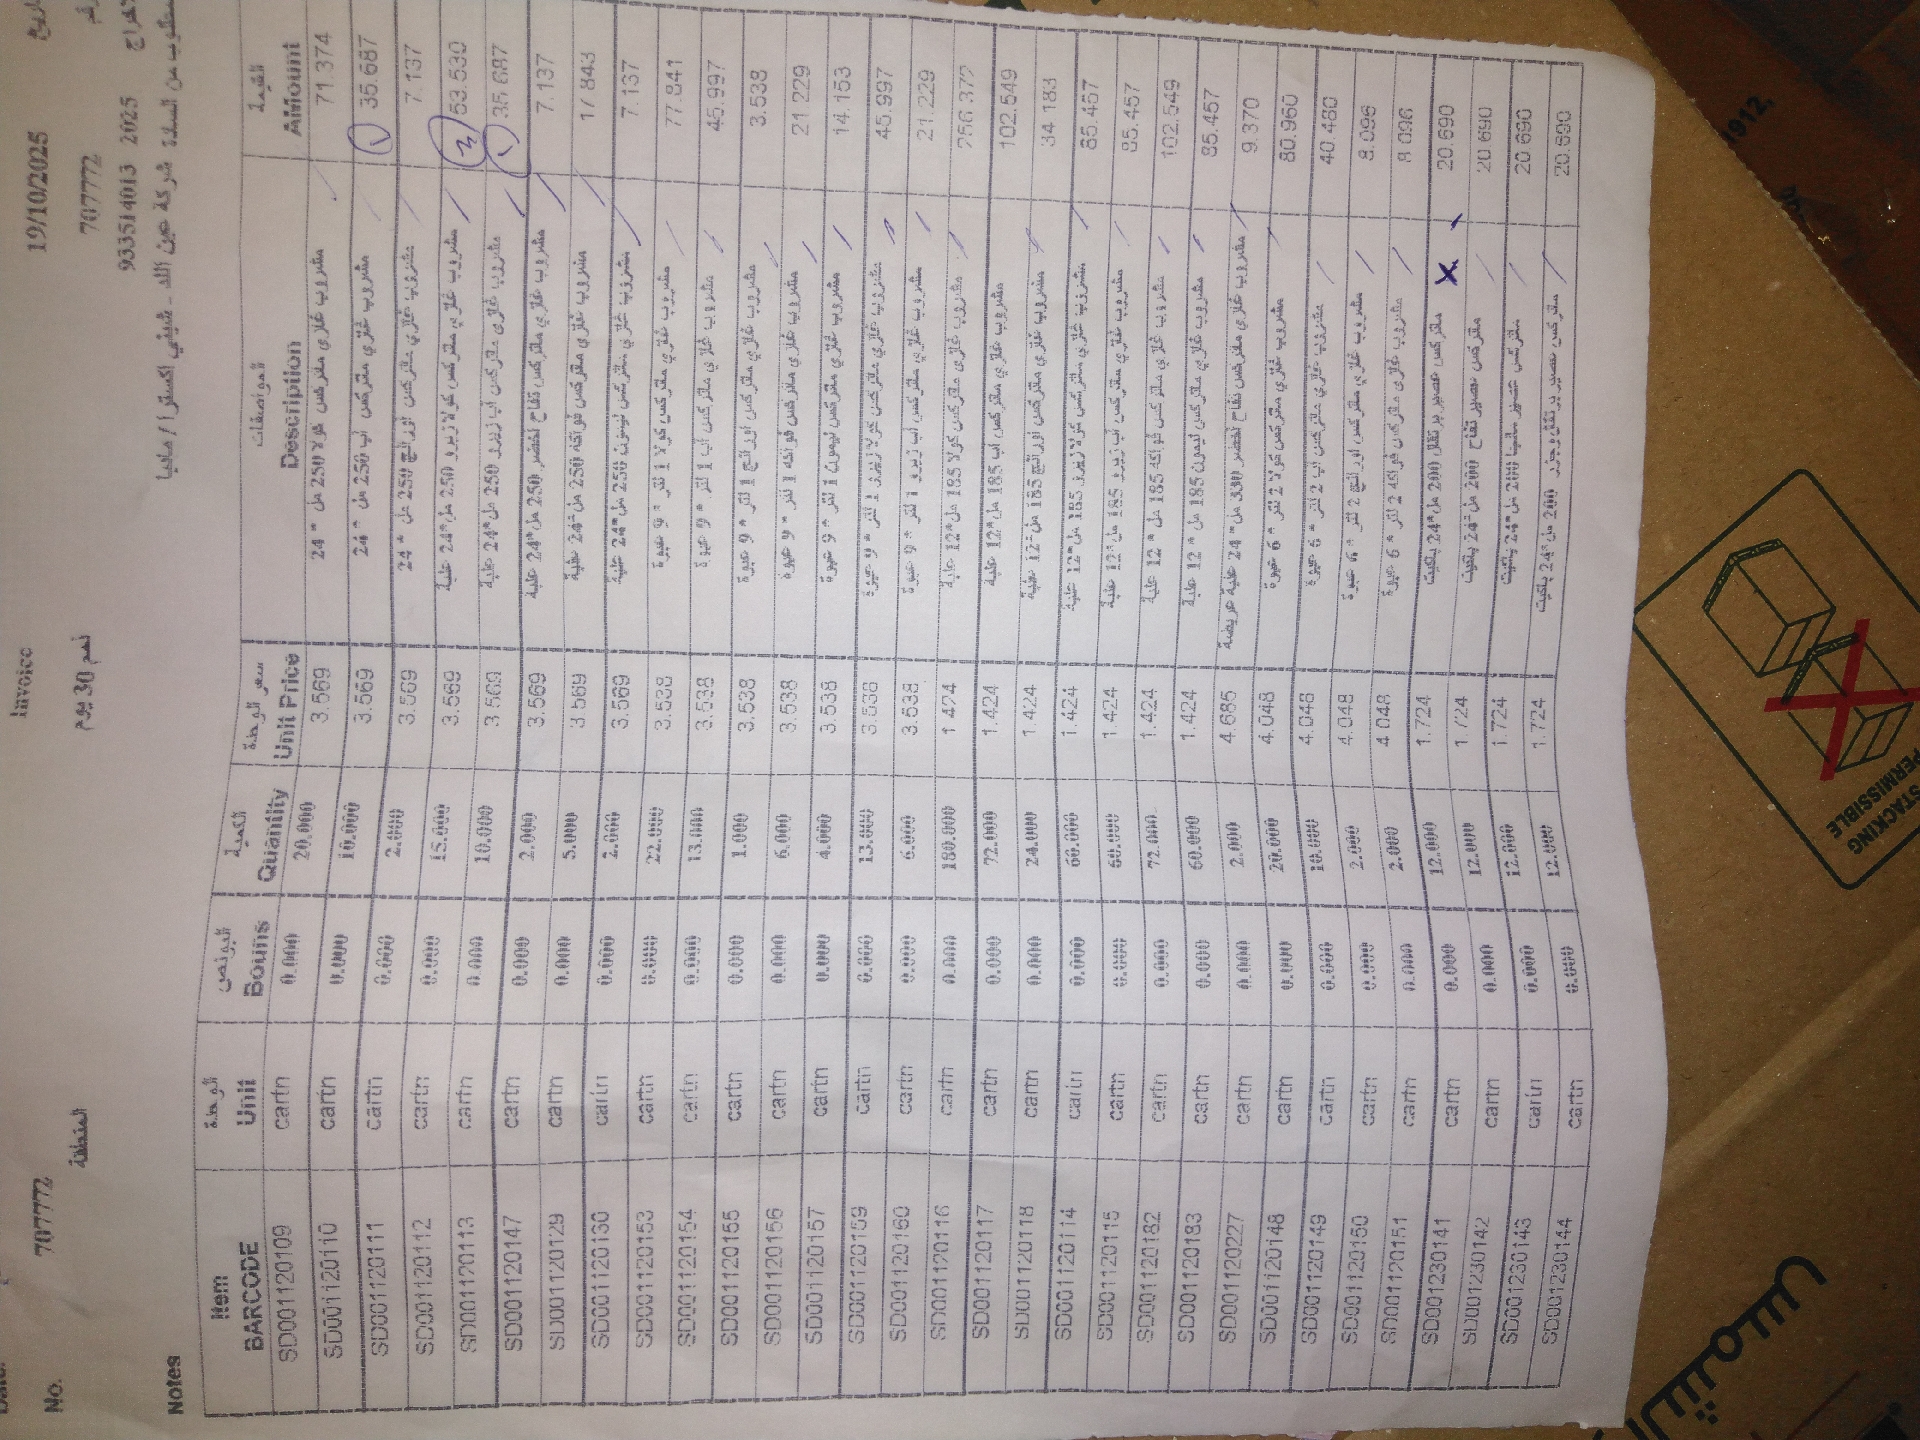 Invoice
No. 7077772 7077772
19/10/2025
نعم 30 يوم
المنطقة
933514013 2025
Notes
الوحدة البونص الكمية سعر الوحدة المواصفات القيمة
Item BARCODE Unit Bouns Quantity Unit Price Description AMount
SD001120109 cartn 0.000 20.000 3.569 مشروب غازي ماتركس كولا 250 مل * 24 71.374
SD001120110 cartn 0.000 10.000 3.569 مشروب غازي ماتركس اب 250 مل * 24 35.687
SD001120111 cartn 0.000 2.000 3.569 مشروب غازي ماتركس اورانج 250 مل * 24 7.137
SD001120112 cartn 0.000 15.000 3.569 مشروب غازي ماتركس كولا زيرو 250 مل*24 علبة 53.530
SD001120113 cartn 0.000 10.000 3.569 مشروب غازي ماتركس اب زيرو 250 مل*24 علبة 35.687
SD001120147 cartn 0.000 2.000 3.569 مشروب غازي ماتركس تفاح اخضر 250 مل*24 علبة 7.137
SD001120129 cartn 0.000 5.000 3.569 مشروب غازي ماتركس فواكه 250 مل*24 علبة 17.843
SD001120130 cartn 0.000 2.000 3.569 مشروب غازي ماتركس ليمون 250 مل*24 علبة 7.137
SD001120153 cartn 0.000 22.000 3.538 مشروب غازي ماتركس كولا 1 لتر * 9 عبوة 77.841
SD001120154 cartn 0.000 13.000 3.538 مشروب غازي ماتركس اب 1 لتر * 9 عبوة 45.997
SD001120155 cartn 0.000 1.000 3.538 مشروب غازي ماتركس اورانج 1 لتر * 9 عبوة 3.538
SD001120156 cartn 0.000 6.000 3.538 مشروب غازي ماتركس فواكه 1 لتر * 9 عبوة 21.229
SD001120157 cartn 0.000 4.000 3.538 مشروب غازي ماتركس ليمون 1 لتر * 9 عبوة 14.153
SD001120159 cartn 0.000 13.000 3.538 مشروب غازي ماتركس كولا زيرو 1 لتر * 9 عبوة 45.997
SD001120160 cartn 0.000 6.000 3.538 مشروب غازي ماتركس اب زيرو 1 لتر * 9 عبوة 21.229
SD001120116 cartn 0.000 180.000 1.424 مشروب غازي ماتركس كولا 185 مل*12 علبة 256.372
SD001120117 cartn 0.000 72.000 1.424 مشروب غازي ماتركس اب 185 مل*12 علبة 102.549
SD001120118 cartn 0.000 24.000 1.424 مشروب غازي ماتركس اورانج 185 مل*12 علبة 34.183
SD001120114 cartn 0.000 60.000 1.424 مشروب غازي ماتركس كولا زيرو 185 مل*12 علبة 85.457
SD001120115 cartn 0.000 60.000 1.424 مشروب غازي ماتركس اب زيرو 185 مل*12 علبة 85.457
SD001120182 cartn 0.000 72.000 1.424 مشروب غازي ماتركس فواكه 185 مل * 12 علبة 102.549
SD001120183 cartn 0.000 60.000 1.424 مشروب غازي ماتركس ليمون 185 مل * 12 علبة 85.457
SD001120227 cartn 0.000 2.000 4.685 مشروب غازي ماتركس تفاح اخضر 330 مل*24 علبة عريضة 9.370
SD001120148 cartn 0.000 20.000 4.048 مشروب غازي ماتركس كولا 2 لتر * 6 عبوة 80.960
SD001120149 cartn 0.000 10.000 4.048 مشروب غازي ماتركس اب 2 لتر * 6 عبوة 40.480
SD001120150 cartn 0.000 2.000 4.048 مشروب غازي ماتركس اورانج 2 لتر * 6 عبوة 8.096
SD001120151 cartn 0.000 2.000 4.048 مشروب غازي ماتركس فواكه 2 لتر * 6 عبوة 8.096
SD001230141 cartn 0.000 12.000 1.724 ماتركس عصير برتقال 200 مل*24 باكيت 20.690
SD001230142 cartn 0.000 12.000 1.724 ماتركس عصير تفاح 200 مل*24 باكيت 20.690
SD001230143 cartn 0.000 12.000 1.724 ماتركس عصير مانجا 200 مل*24 باكيت 20.690
SD001230144 cartn 0.000 12.000 1.724 ماتركس عصير برتقال وجزر 200 مل*24 باكيت 20.690
STACKING
PERMISSIBLE